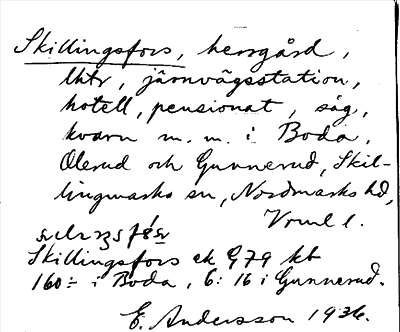 Skillingsfors, herrgård,
lhtr, järnvägsstation,
hotell, pensionat, såg,
kvarn m. m. i Boda,
Olerud och Gunnerud, Skil-
lingmarks sn, Nordmarks hd,
Vrml l.
Skillingsfors ek G79 kt
160:- i Boda, 6:16 i Gunnerud.
E. Andersson 1936.